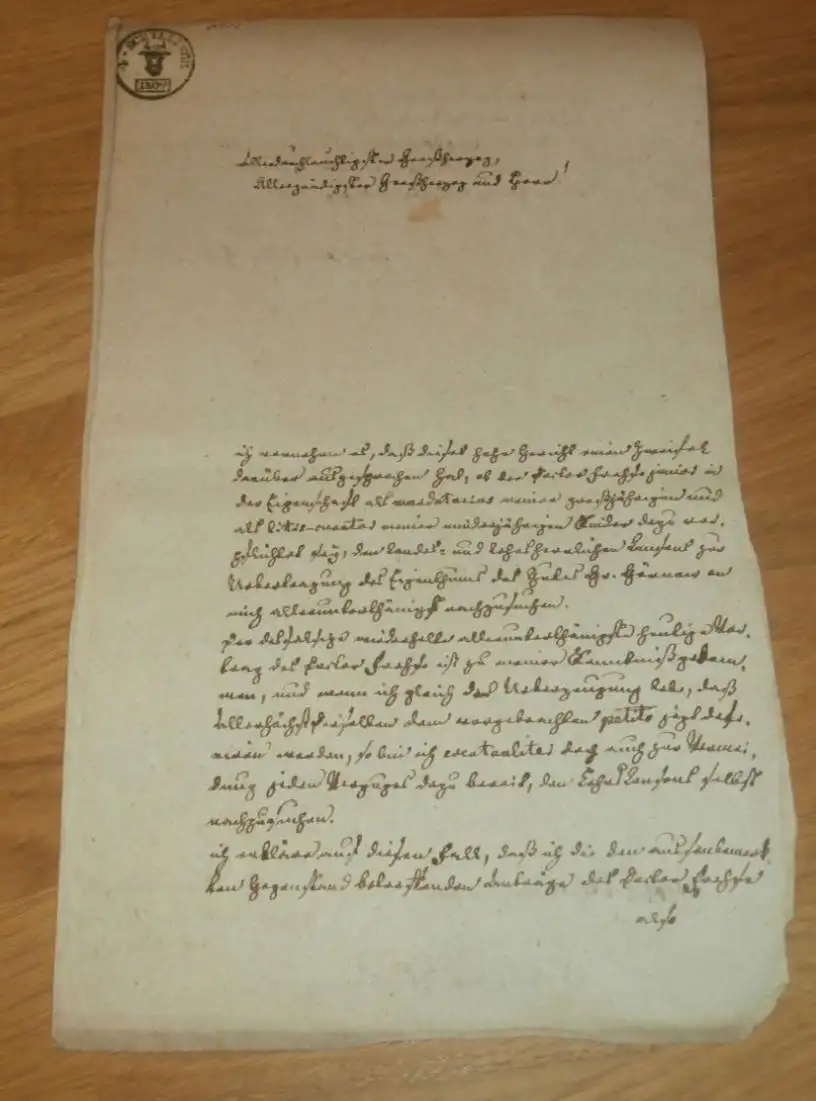 4 SCHILLINGE
Allerdurchlauchtigster Großherzog,
Allergnädigster Großherzog und Herr!
ich vernehme es, daß dieses hohe Gericht einen Zweifel
darüber ausgesprochen hat, ob der Doctor junior in
der Eigenschaft als mandatarius meiner großjährigen und
als litis-curator meiner minderjährigen Kinder dazu ver-
pflichtet sey, den landes- und lehnherrlichen Consens zur
Uebertragung des Eigenthums des Gutes Gr. an
mich allerunterthänigst nachzusuchen.
Der desfalsige allerunterthänigste heutige Vor-
trag des Doctor ist zu meiner Kenntniß gekom-
men, und wenn ich gleich der Ueberzeugung lebe, daß
Allerhöchstdieselben dem vorgebrachten petito jetzt defe-
riren werden, so bin ich eventualiter doch auch zur Vermei-
dung jeden Verzuges dazu bereit, den LehnsConsens selbst
nachzusuchen.
ich erkläre auf diesen Fall, daß ich die den aussenbemerk-
ten Gegenstand betreffenden Anträge des Doctor
also